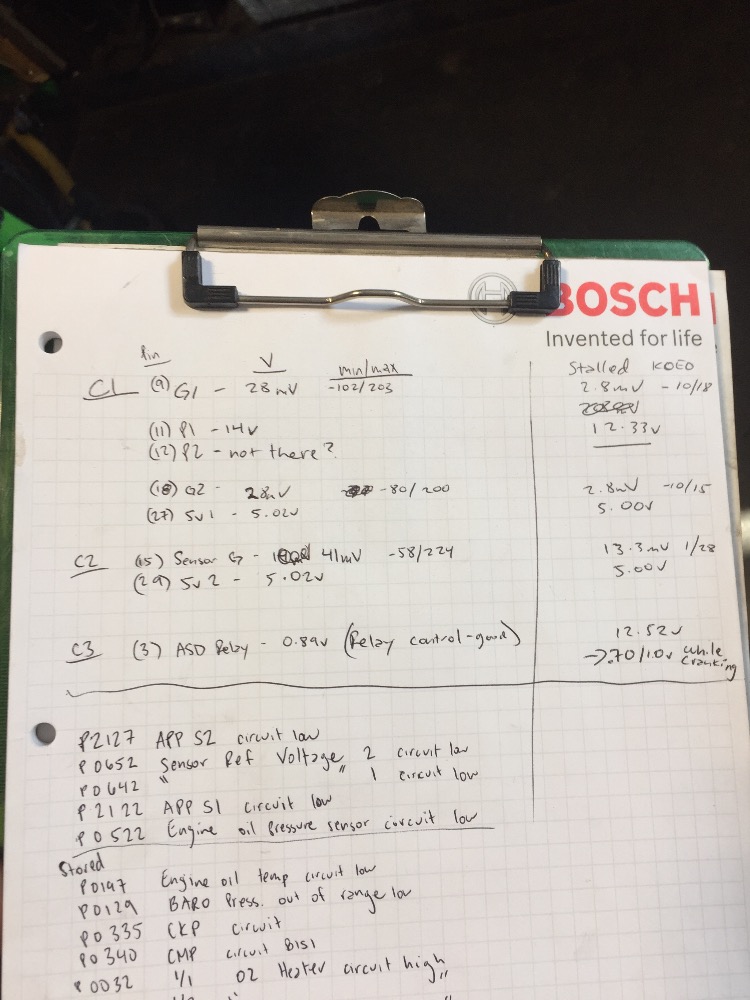 BOSCH
Invented for life
Pin V min/max Stalled KOEO
C1 (9) G1 - 28mV -102/203 2.8mV -10/18
(11) P1 - 14V 12.33V
(12) P2 - not there?
(18) G2 - 28mV -80/200 2.8mV -10/15
(27) 5v1 - 5.02V 5.00V
C2 (15) Sensor G - 41mV -58/224 13.3mV 1/28
(29) 5v2 - 5.02V 5.00V
C3 (3) ASD Relay - 0.89V (Relay control-good) 12.52V
→.70/1.0v while cranking
P2127 APP S2 circuit low
P0652 Sensor Ref Voltage 2 circuit low
P0642 " " 1 circuit low
P2122 APP S1 circuit low
P0522 Engine oil pressure sensor circuit low
Stored
P0197 Engine oil temp circuit low
P0129 BARO Press. out of range low
P0335 CKP circuit
P0340 CMP circuit B1S1
P0032 1/1 O2 Heater circuit high